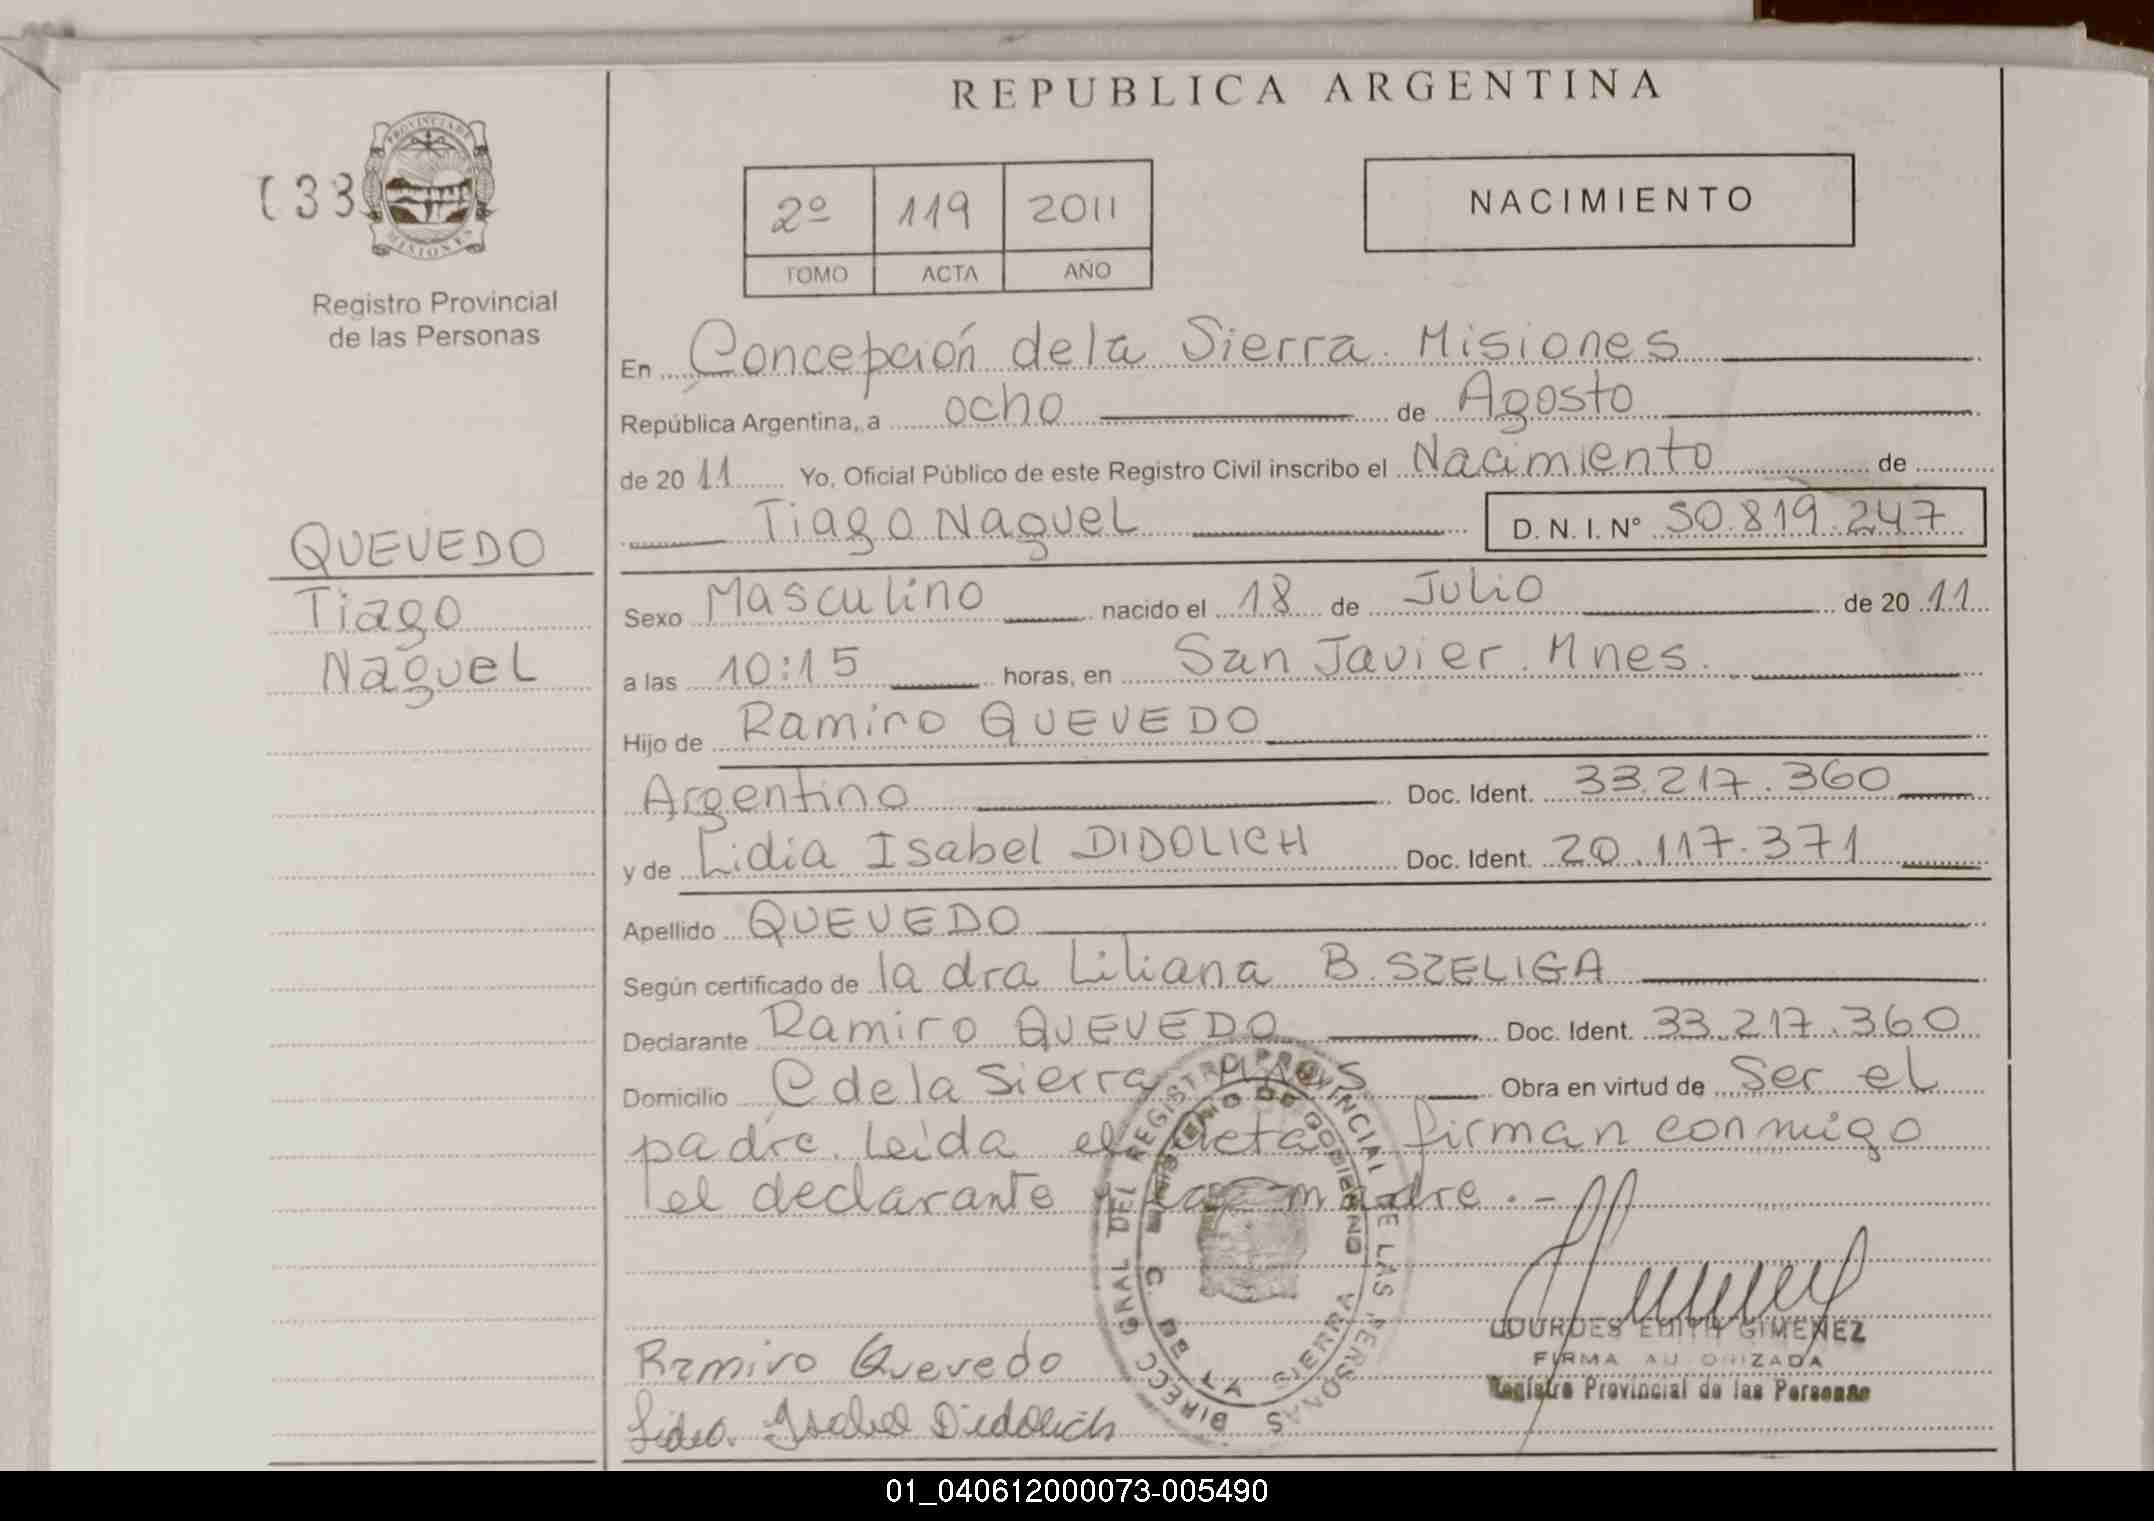 REPUBLICA ARGENTINA
PROVINCIA DE
MISIONES
Registro Provincial
de las Personas
2º 119 2011
TOMO ACTA AÑO
NACIMIENTO
QUEVEDO
Tiago
Naguel
En Concepción dela Sierra. Misiones
República Argentina, a ocho de Agosto
de 2011 Yo, Oficial Público de este Registro Civil inscribo el Nacimiento de
Tiago Naguel D. N. I. Nº 50.819.247
Sexo Masculino nacido el 18 de Julio de 2011
a las 10:15 horas, en San Javier. Mnes.
Hijo de Ramiro QUEVEDO
Argentino Doc. Ident. 33.217.360
y de Lidia Isabel DIDOLICH Doc. Ident. 20.117.371
Apellido QUEVEDO
Según certificado de la dra Liliana B. SZELIGA
Declarante Ramiro QUEVEDO Doc. Ident. 33.217.360
Domicilio C dela Sierra Obra en virtud de Ser el
padre. Leida el acta firman conmigo
el declarante y la madre.-
DIRECC GRAL DEL REGISTRO PROVINCIAL DE LAS PERSONAS
MINISTERIO DE GOBIERNO
C. DE LA SIERRA
LOURDES EDITH GIMENEZ
FIRMA AUTORIZADA
Registro Provincial de las Personas
Ramiro Quevedo
Lidia Isabel Didolich
01_040612000073-005490